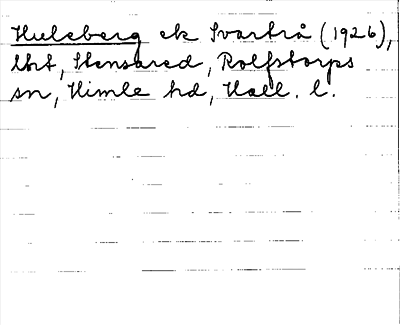 Hulsberg ek Svartrå (1926),
lht, Stensared, Rolfstorps
sn, Himle hd, Hall. l.